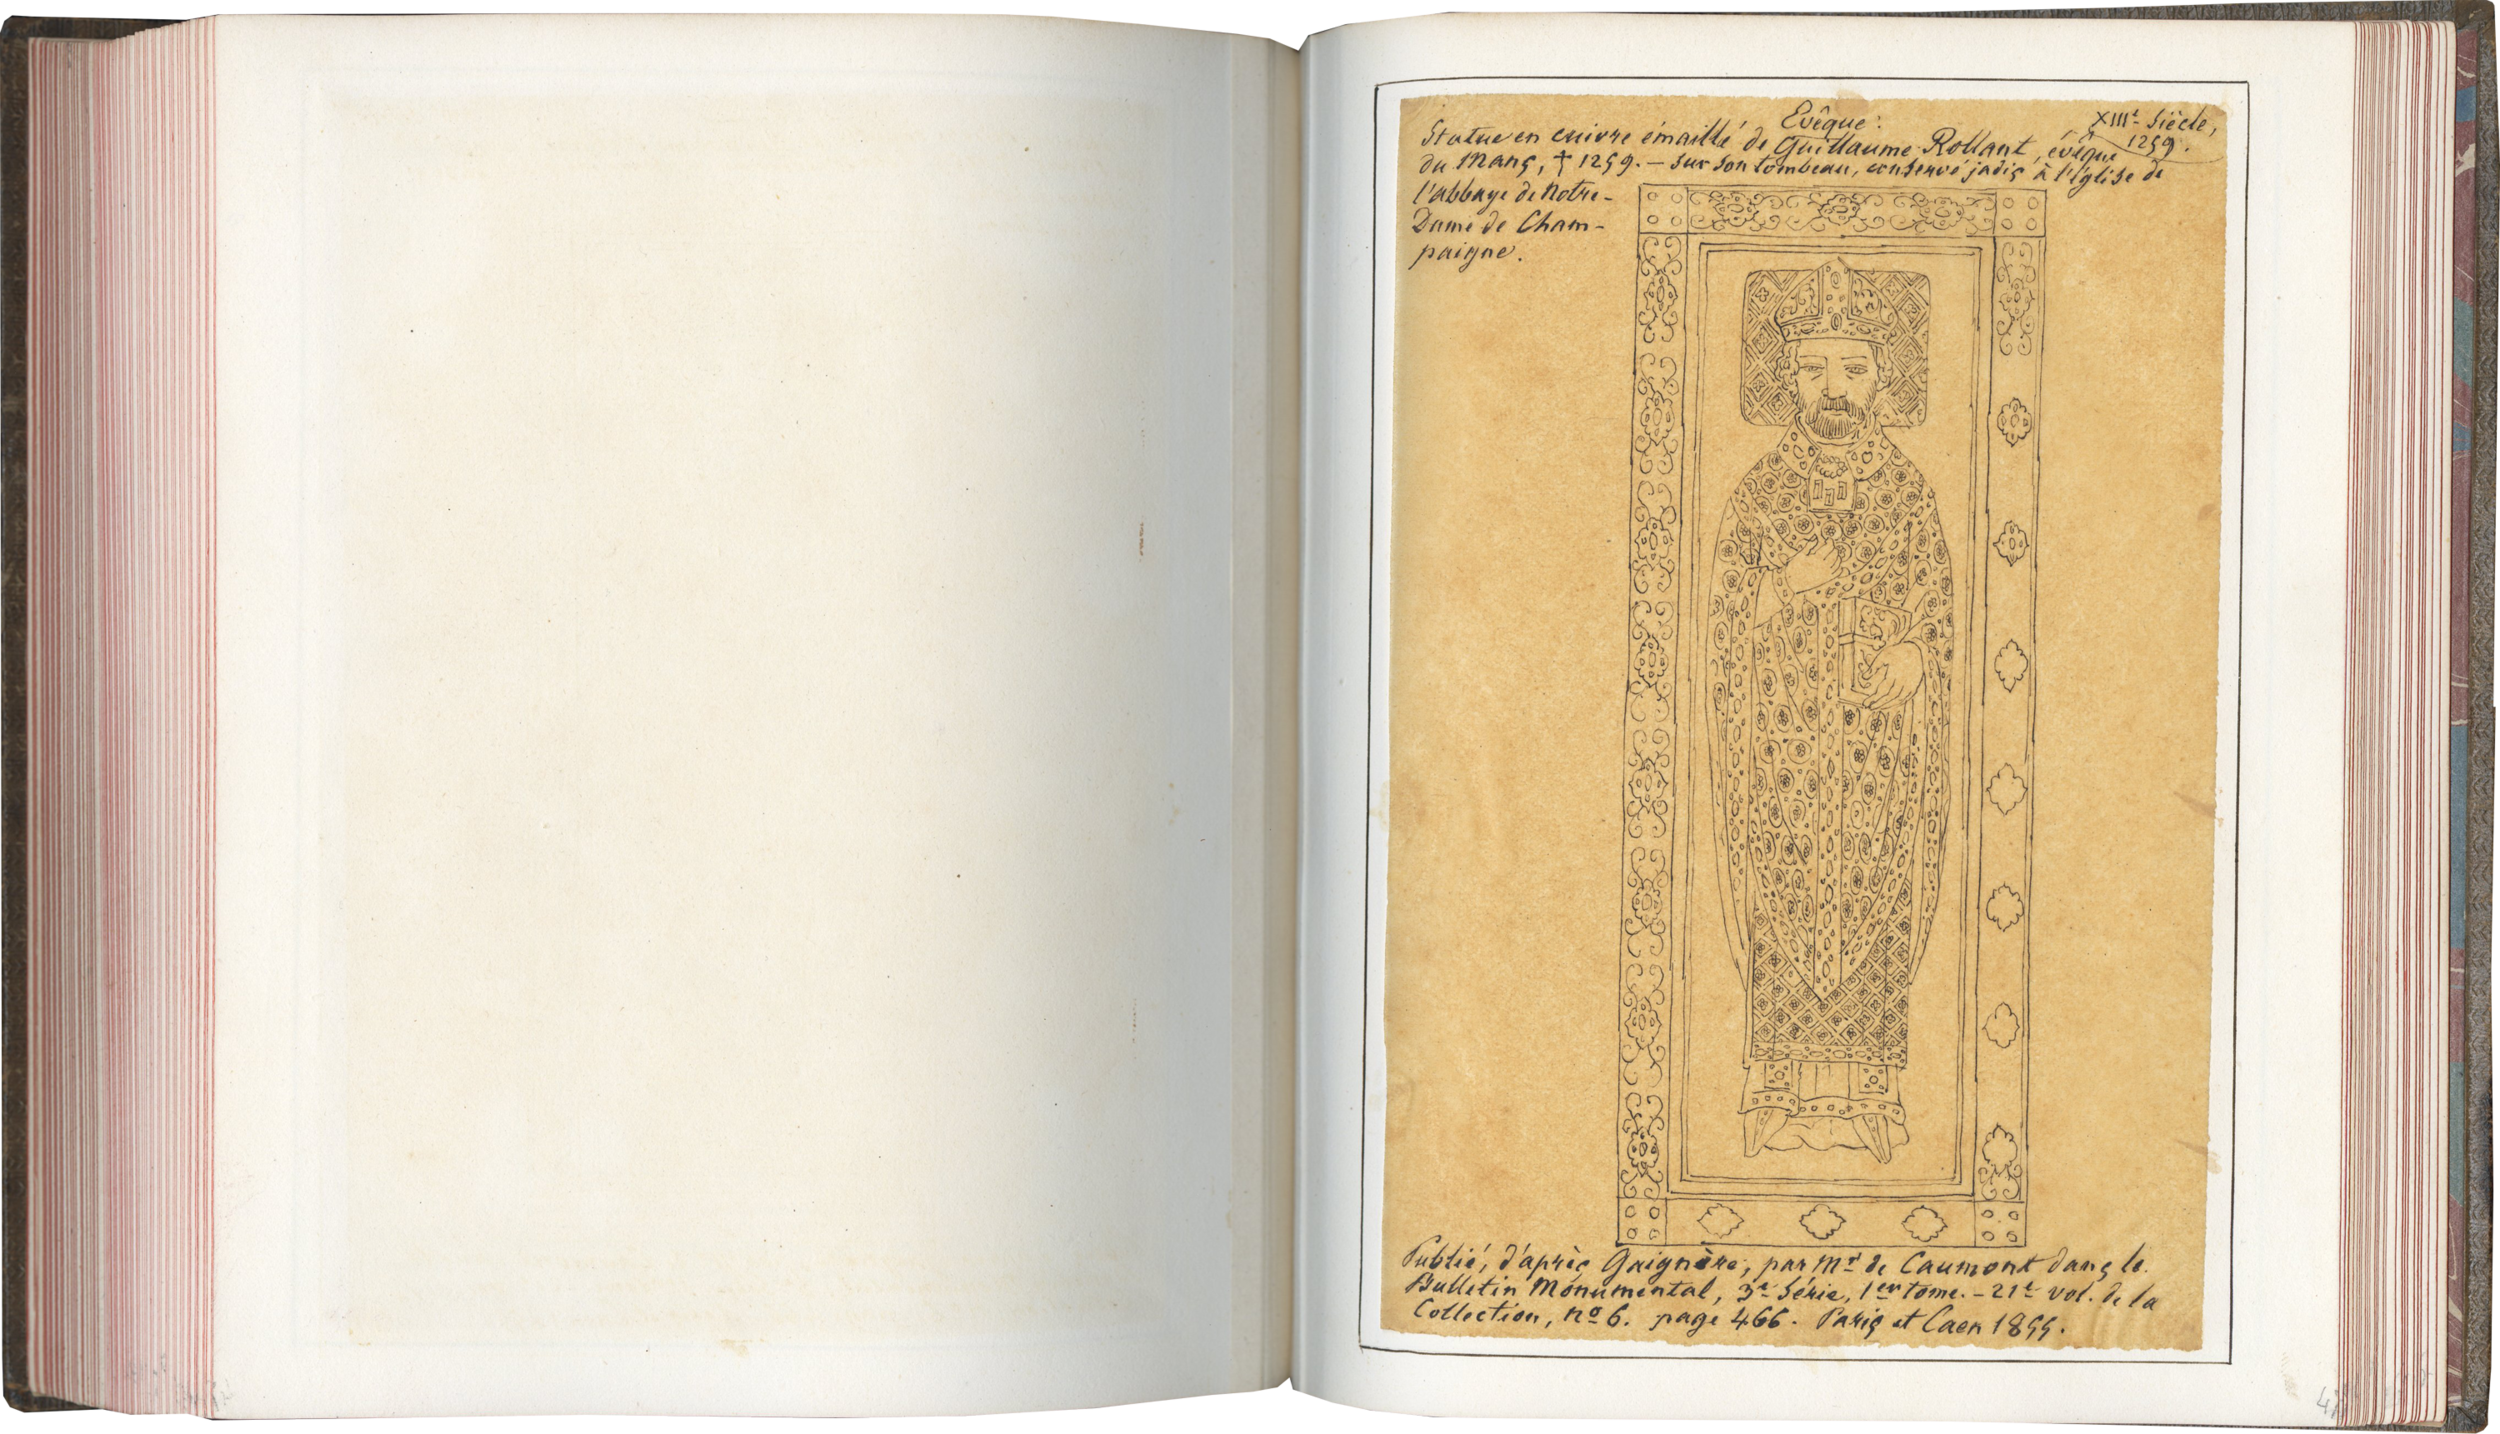 Evêque:
XIIIe Siècle,
1259.
Statue en cuivre émaillé de Guillaume Rollant, évêque
du Mans, † 1259. – sur son tombeau, conservé jadis à l'église de
l'abbaye de Notre-
Dame de Cham-
paigne.
Publié, d'après Gaignère, par Mr de Caumont dans le
Bulletin Monumental, 3e Série, 1er tome. – 21e vol. de la
Collection, no 6. page 466. Paris et Caen 1855.